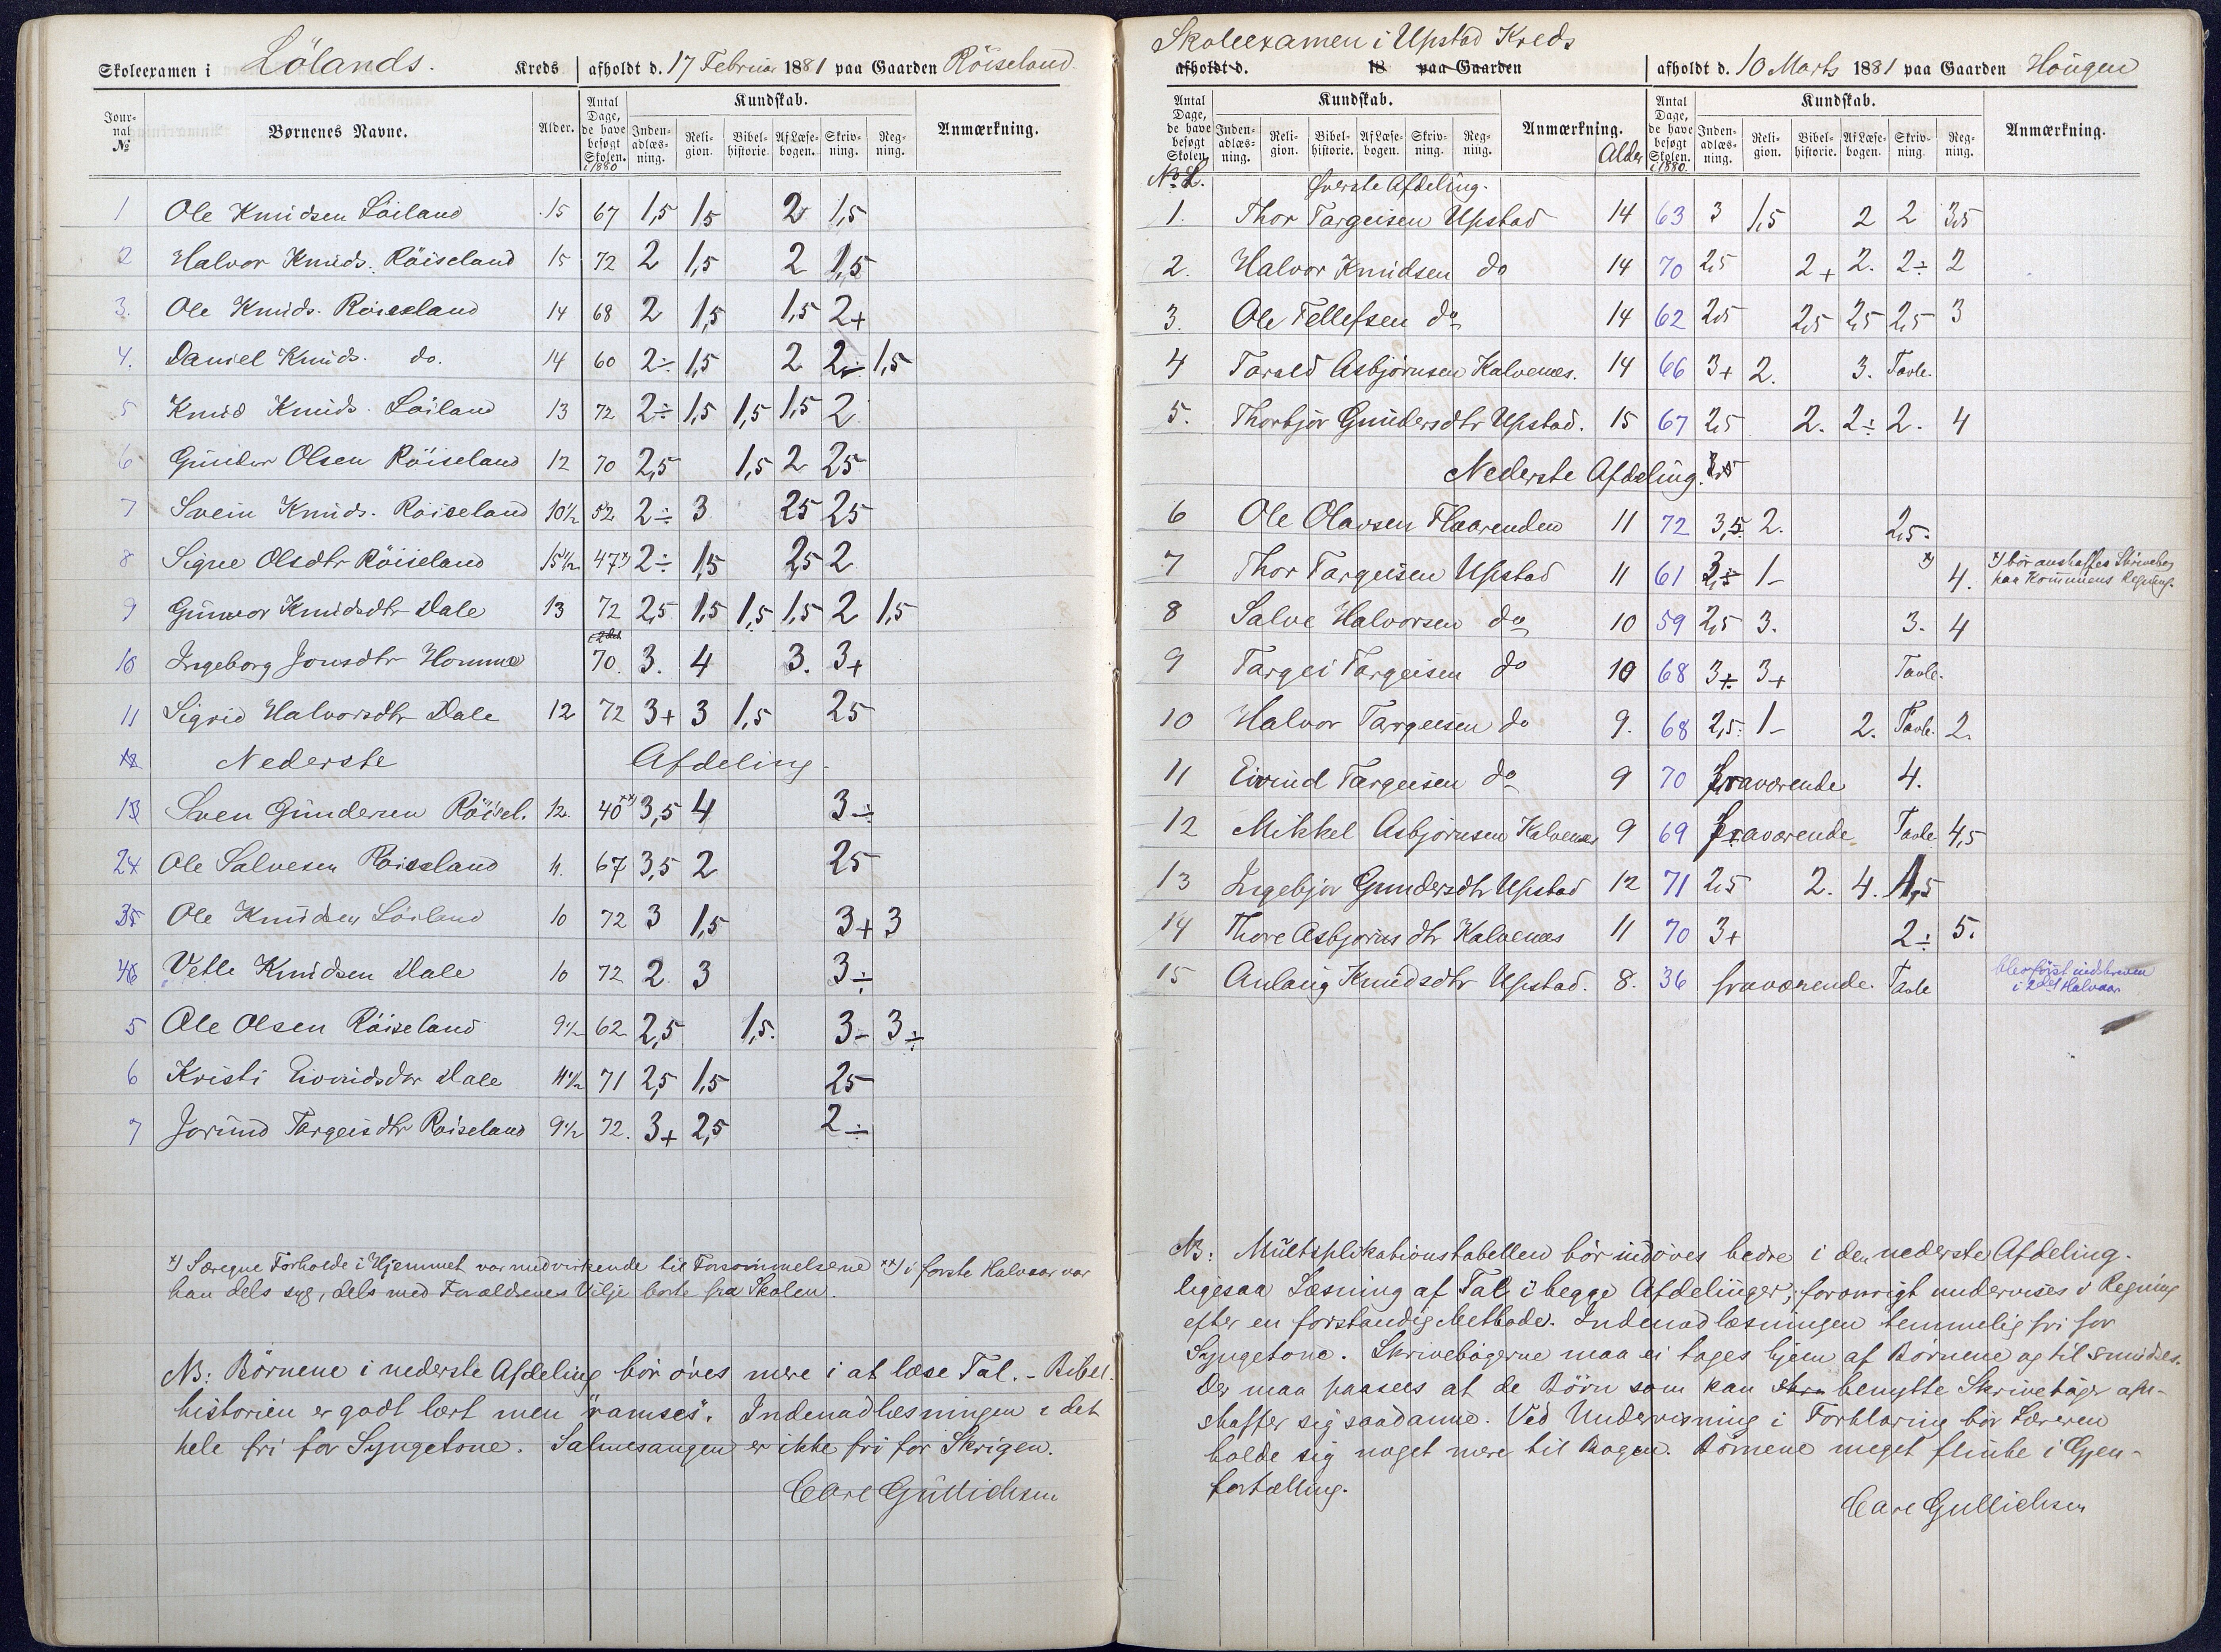 Skoleexamen i Lölands. Kreds afholdt d. 17 Februar 1881 paa Gaarden Röiseland
Journal № Børnenes Navne. Alder. Antal Dage, de have besøgt Skolen. i 1880 Kundskab. Indenadlæsning. Religion. Bibelhistorie. Af Læsebogen. Skrivning. Regning. Anmærkning.
1 Ole Knudsen Löiland 15 67 1,5 1,5 2 1,5
2 Halvor Knuds. Röiseland 15 72 2 1,5 2 1,5
3. Ole Knuds. Röiseland 14 68 2 1,5 1,5 2+
4. Daniel Knuds. do. 14 60 2÷ 1,5 2 2÷ 1,5
5 Knud Knuds. Löiland 13 72 2÷ 1,5 1,5 1,5 2
6 Gunder Olsen Röiseland 12 70 2,5 1,5 2 25
7 Svein Knuds. Röiseland 10½ 52 2÷ 3 25 25
8 Signe Olsdtr Röiseland 15½ 47 *) 2÷ 1,5 2,5 2
9 Gunvor Knudsdtr Dale 13 72 2,5 1,5 1,5 1,5 2 1,5
10 Ingeborg Jonsdtr Homme 70. 3. 4 3. 3+
11 Sigrid Halvorsdtr Dale 12 72 3+ 3 1,5 25
Nederste Afdeling.
1 Sven Gundersen Röisel. 12. 40 **) 3,5 4 3÷
2 Ole Salvesen Röiseland 11. 67 3,5 2 25
3 Ole Knudsen Löiland 10 72 3 1,5 3+ 3
4 Vetle Knudsen Dale 10 72 2 3 3÷
5 Ole Olsen Röiseland 9½ 62 2,5 1,5. 3- 3÷
6 Kristi Eivindsdtr Dale 11½ 71 2,5 1,5 25
7 Jorund Targeisdtr Röiseland 9½ 72. 3+ 2,5 2÷
*) Særegne Forholde i Hjemmet var medvirkende til Forsømmelserne **) i første Halvaar var
han dels syg, dels med Forældrenes Vilje borte fra Skolen.
NB: Börnene i nederste Afdeling bör öves mere i at læse Tal. - Bibel-
historien er godt lært men "ramses". Indenadlæsningen i det
hele fri for Syngetone. Salmesangen er ikke fri for Skrigen.
Carl Gullichsen
Skoleexamen i Upstad Kreds
afholdt d. 18 paa Gaarden afholdt d. 10 Marts 1881 paa Gaarden Haugen
Antal Dage, de have besøgt Skolen. Kundskab. Indenadlæsning. Religion. Bibelhistorie. Af Læsebogen. Skrivning. Regning. Anmærkning. Alder Antal Dage, de have besøgt Skolen. i 1880. Kundskab. Indenadlæsning. Religion. Bibelhistorie. Af Læsebogen. Skrivning. Regning. Anmærkning.
No Øverste Afdeling.
1. Thor Targeisen Upstad 14 63 3 1,5 2 2 3,5
2. Halvor Knudsen do 14 70 2,5 2+ 2. 2÷ 2
3. Ole Tellefsen do 14 62 2,5 2,5 2,5 2,5 3
4 Tarald Asbjørnsen Kalvenes. 14 66 3+ 2. 3. Tavle.
5. Thorbjør Gundersdtr Upstad. 15 67 2,5 2. 2÷ 2. 4
Nederste Afdeling.
6 Ole Olavsen Flaarenden 11 72 3,5 2. 2,5.
7 Thor Targeisen Upstad 11 61 1- *) 4. *) bör anskaffes Skrivebog
paa Kommunens Regning.
8 Salve Halvorsen do 10 59 2,5 3. 3. 4
9 Targei Targeisen do 10 68 3+ 3+ Tavle.
10 Halvor Targeisen do 9. 68 2,5. 1- 2. Tavle. 2.
11 Eivind Targeisen do 9 70 fraværende 4.
12 Mikkel Asbjørnsen Kalvenes 9 69 fraværende Tavle 4,5
13 Ingebjør Gundersdtr Upstad 12 71 2,5 2. 4. 1,5
14 Thore Asbjørnsdtr Kalvenes 11 70 3+ 2÷ 5.
15 Anlaug Knudsdtr Upstad. 8. 36 fraværende. Tavle blev først indskreven
i 2det Halvaar
NB: Multiplikationstabellen bör indöves bedre i den nederste Afdeling.
ligesaa Læsning af Tal i begge Afdelinger; forövrigt undervises i Regning
efter en forstandig Methode. Indenadlæsningen temmelig fri for
Syngetone. Skrivebögerne maa ei tages hjem af Börnene og til smudses.
Der maa paasees at de Börn som kan benytte Skriveböger an-
skaffer sig saadanne. Ved Undervisning i Forklaring bör Læreren
holde sig noget mere til Bogen. Börnene meget flinke i Gjen-
fortælling.
Carl Gullichsen